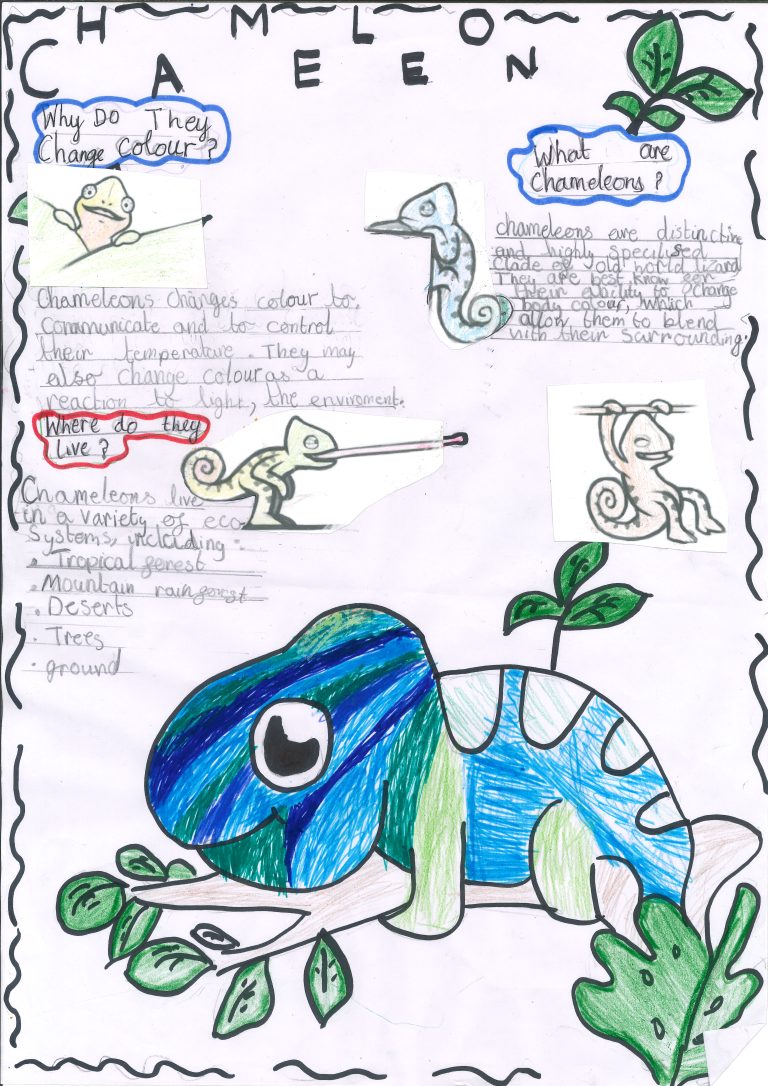 CHAMELEON
Why Do They
Change Colour?
Chameleons changes colour to
communicate and to control
their temperature. They may
also change colour as a
reaction to light, the enviroment.
What are
Chameleons?
chameleons are distinctive
and highly specilised
clade of old world lizard
They are best know for
their ability to change
body colour, which
allow them to blend
with their sarrounding.
Where do they
Live?
Chameleons live
in a variety of eco
Systems, including:
. Tropical forest
. Mountain rainforest
. Deserts
. Trees
. ground